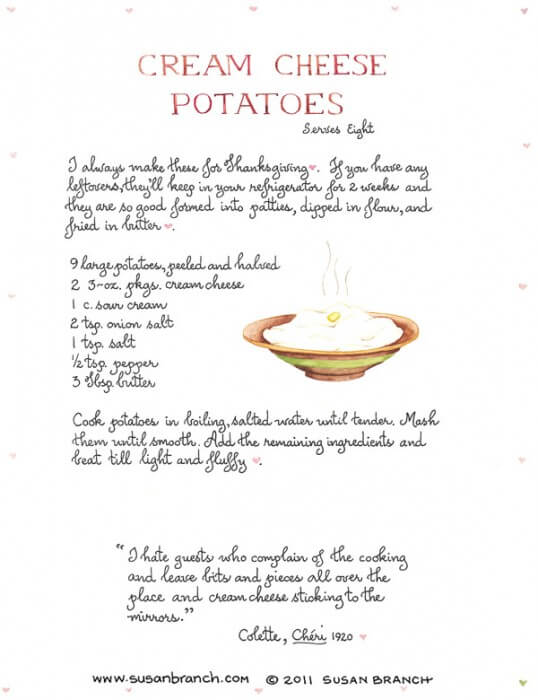 CREAM CHEESE
POTATOES
Serves Eight
I always make these for Thanksgiving. If you have any
leftovers, they'll keep in your refrigerator for 2 weeks and
they are so good formed into patties, dipped in flour, and
fried in butter.
9 large potatoes, peeled and halved
2 3-oz. pkgs. cream cheese
1 c. sour cream
2 tsp. onion salt
1 tsp. salt
½ tsp. pepper
3 Tbsp. butter
Cook potatoes in boiling, salted water until tender. Mash
them until smooth. Add the remaining ingredients and
beat till light and fluffy.
"I hate guests who complain of the cooking
and leave bits and pieces all over the
place and cream cheese sticking to the
mirrors."
Colette, Chéri 1920
www.susanbranch.com © 2011 SUSAN BRANCH